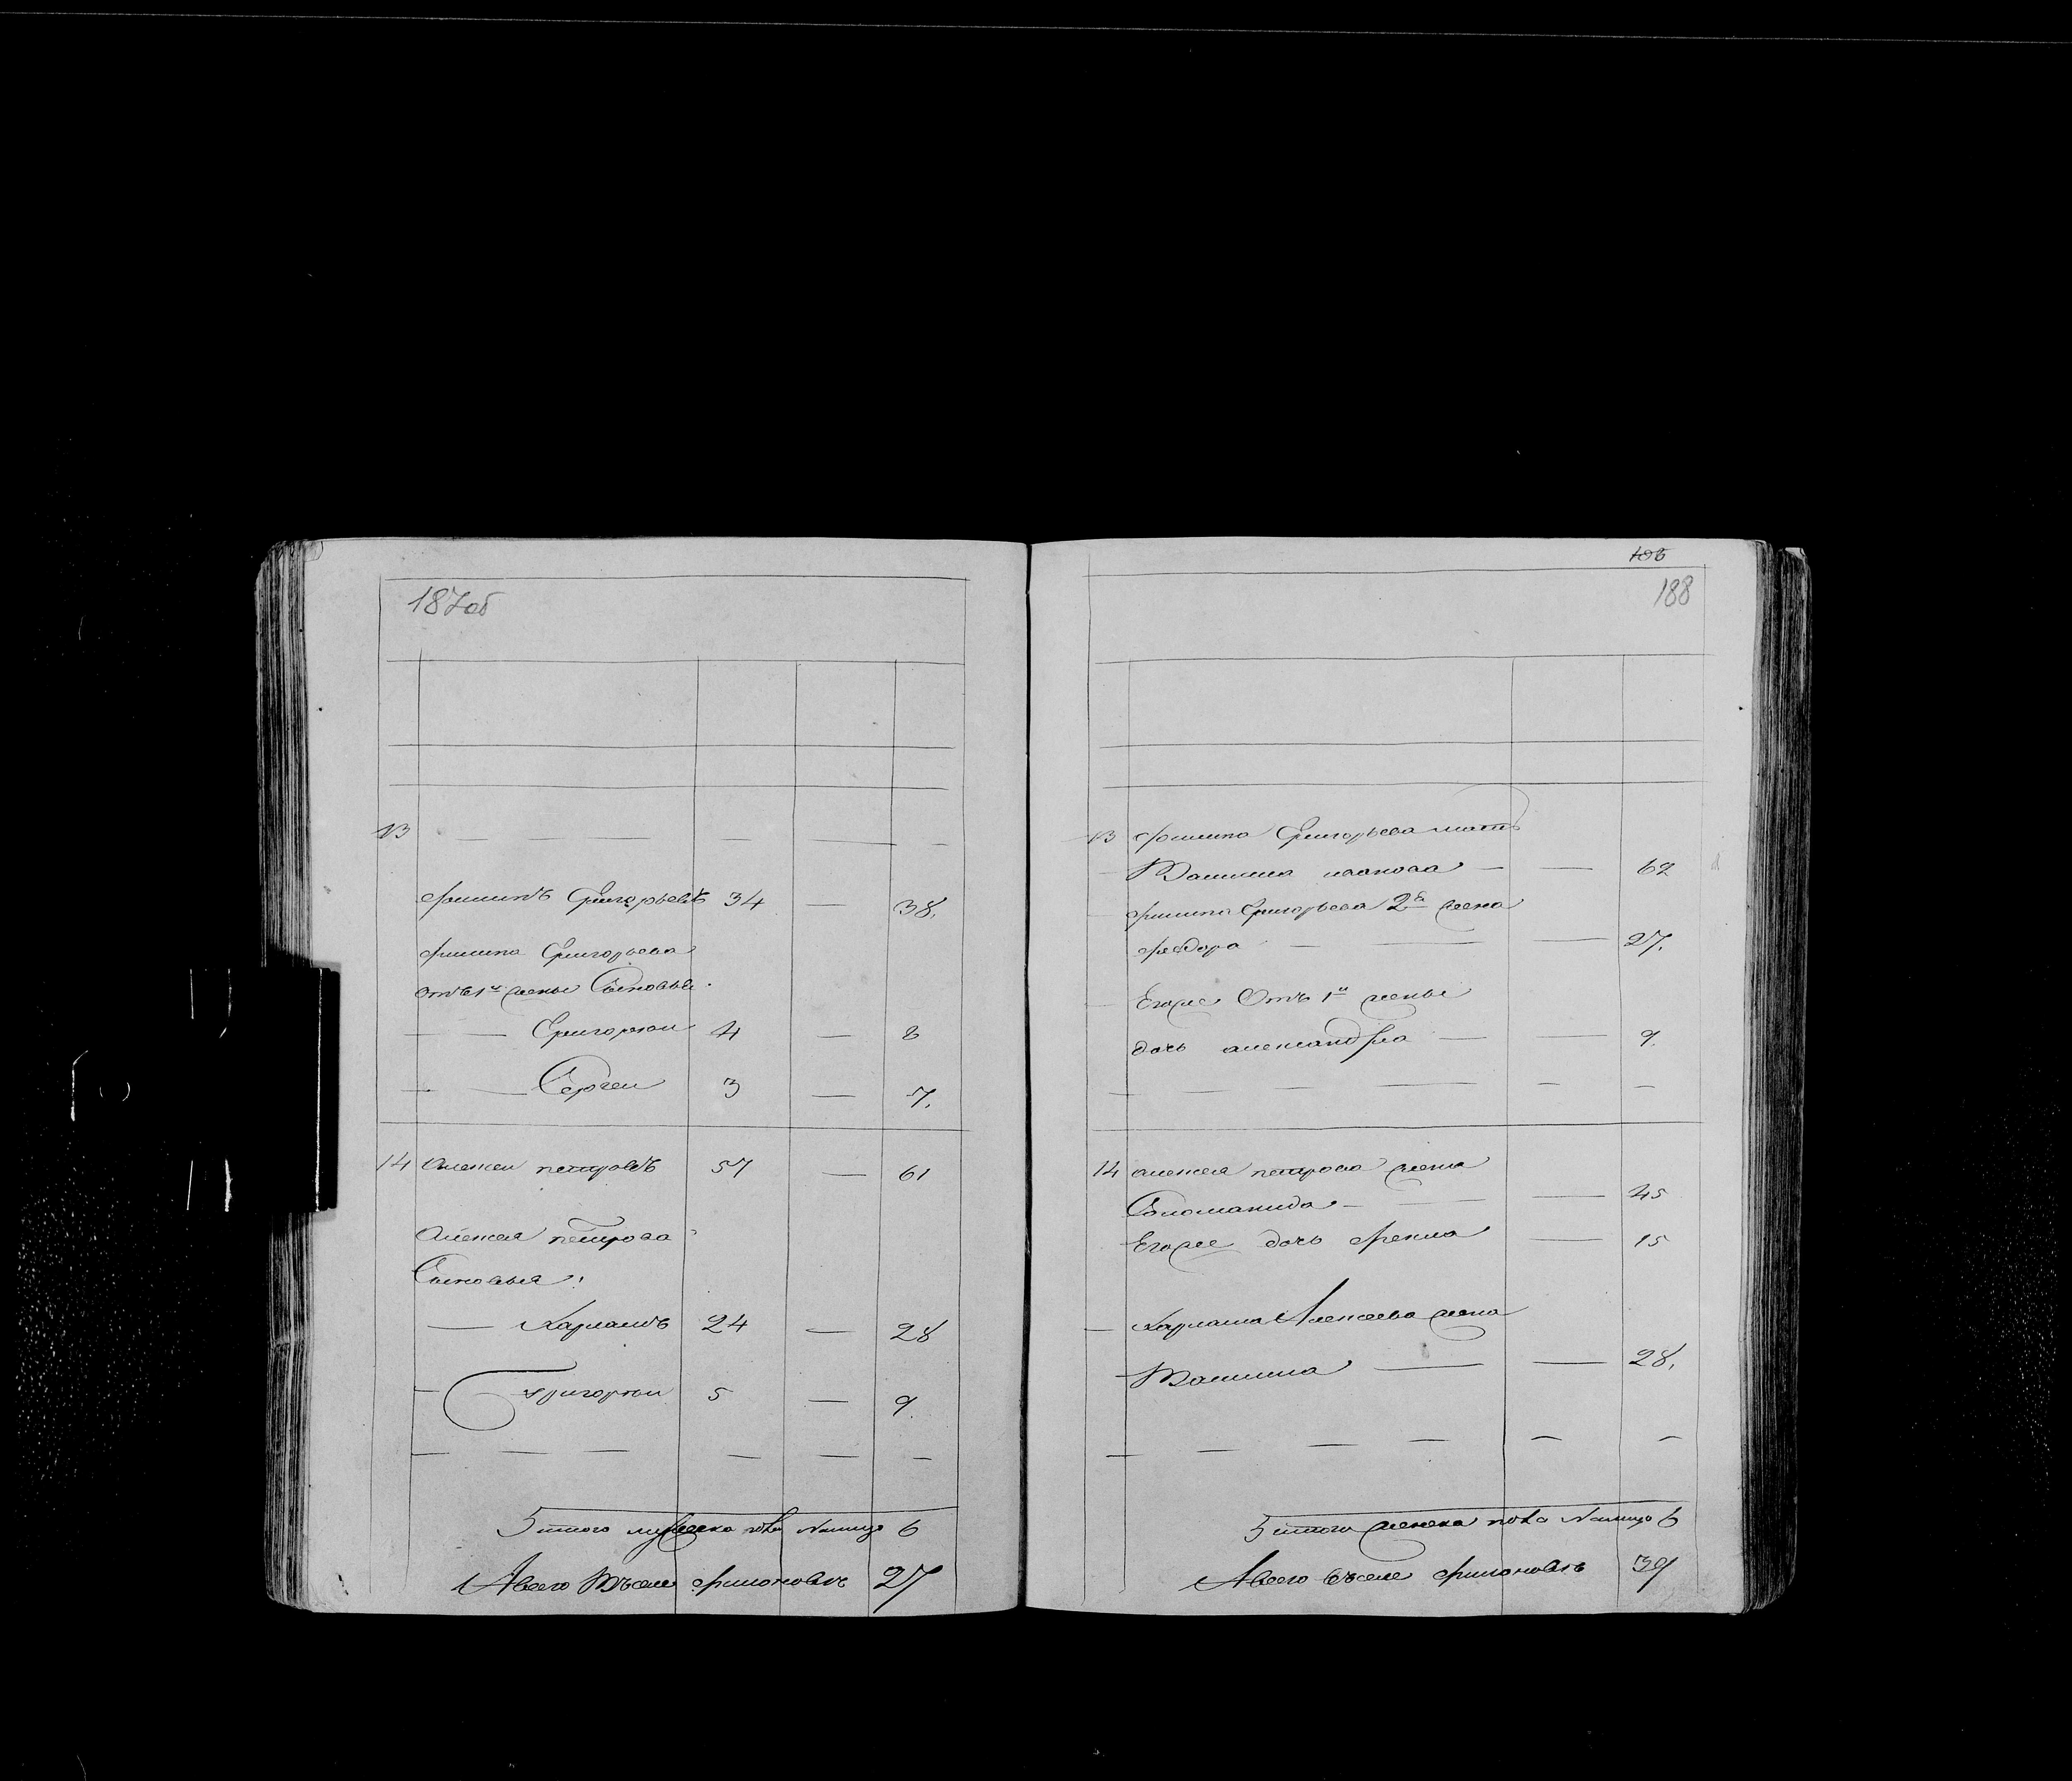 187об
13
Филипъ Григорьевъ 34 — 38.
Филипа Григорьева
отъ 1й жены Сыновья.
Григорий 4 — 8
Сергеи 3 — 7.
14 Алексеи петровъ 57 — 61
Алексея петрова
Сыновья:
Харламъ 24 — 28
Григории 5 — 9.
Итого мужеска пола налицо 6
А всего Въселе Филоновке 27
188
13 Филипа Григорьева мать
Василиса — — 62
Филипа Григорьева 2я жена
Федора — — 27.
Егоже Отъ 1й жены
дочь александра — — 9.
14 алексея петрова жена
Соломанида — — 45
Егоже дочь Фекла — 15
Харлама Алексеева жена
Василиса — — 28.
Итого женска пола Налицо 6
А всего Въселе Филоновке 39